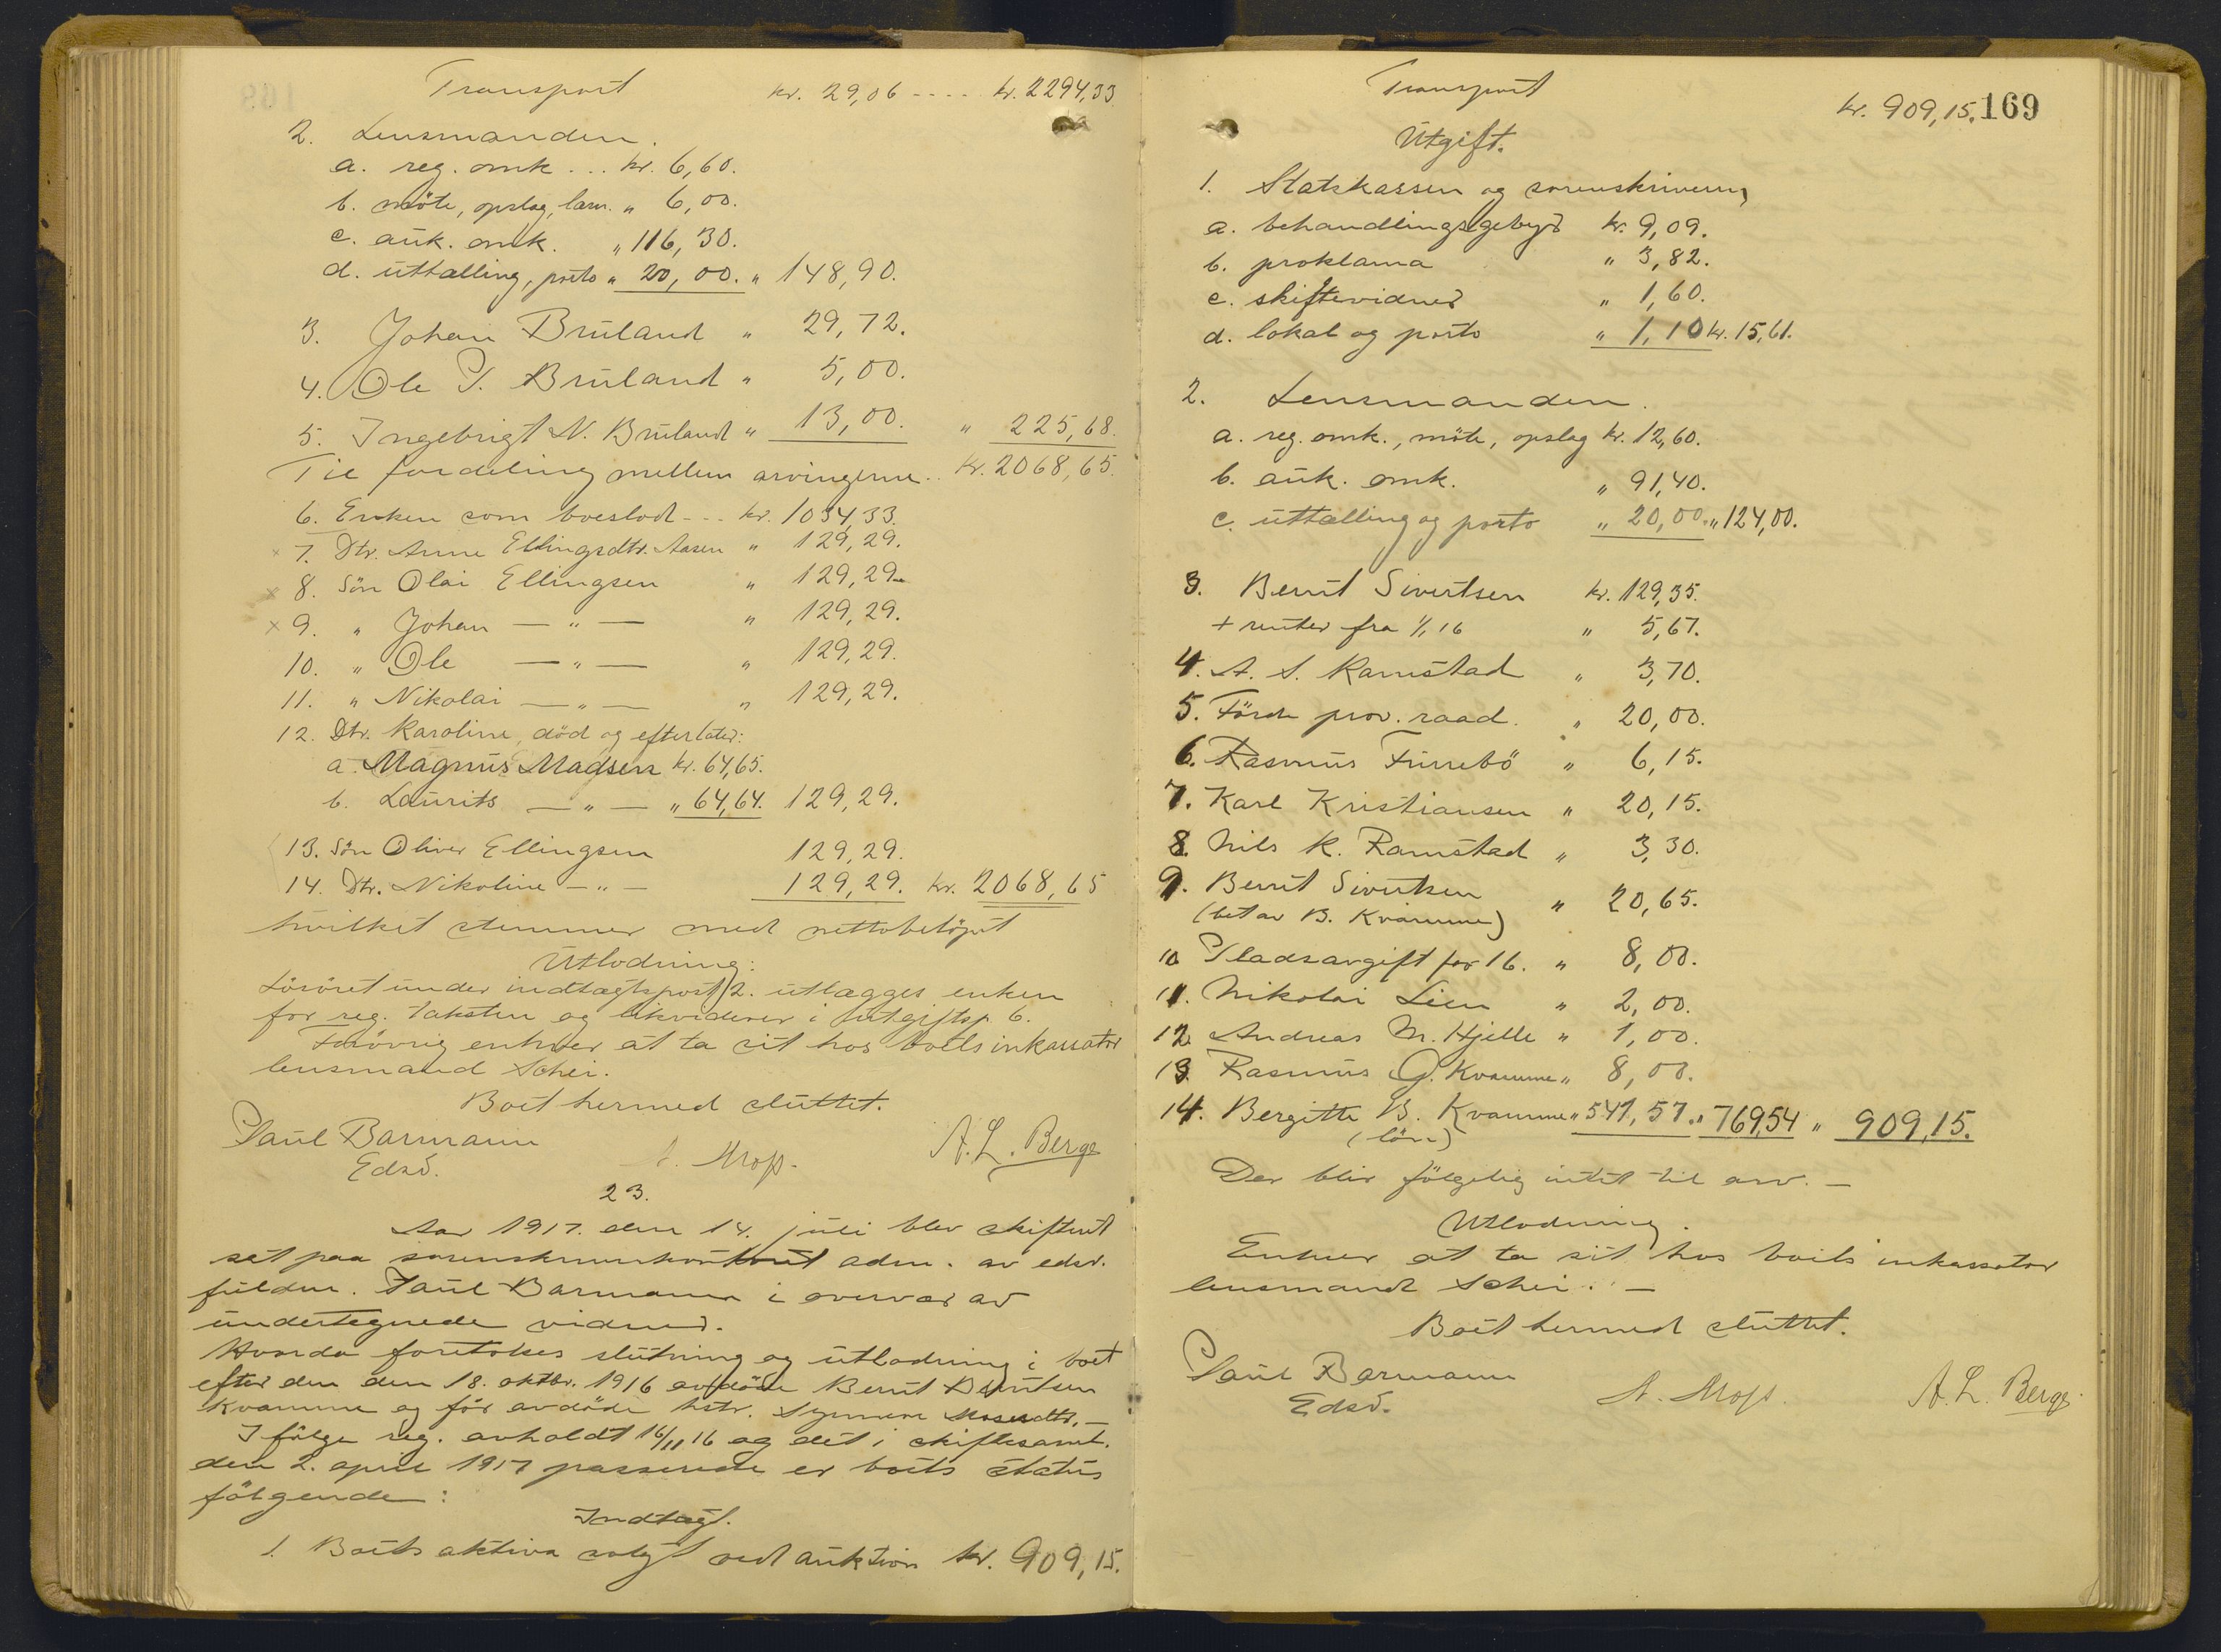 Transport kr. 29,06 .... kr. 2294,33
2. Lensmanden.
a. reg. omk ... kr. 6,60.
b. möte, opslag, larm. " 6,00.
c. auk. omk. " 116,30.
d. uttælling, porto " 20,00. " 148,90.
3. Johan Bruland " 29,72.
4. Ole P. Bruland " 5,00.
5. Ingebrigt N. Bruland " 13,00. " 225,68.
Til fordeling mellem arvingerne .. kr. 2068,65.
6. Enken som boeslod --- kr. 1034,33.
x 7. Dtr. Anne Ellingsdtr. Aasen " 129,29.
x 8. Sön Olai Ellingsen " 129,29.
x 9. " Johan — " — " 129,29.
10. " Ole — " — " 129,29.
11. " Nikolai — " — " 129,29.
12. Dtr. Karoline, död og efterlater:
a. Magnus Madsen kr. 64,65.
b. Laurits — " — " 64,64. 129,29.
13. Sön Oliver Ellingsen 129,29.
14. Dtr. Nikoline — " — 129,29. kr. 2068,65
hvilket stemmer med nettobelöpet
Utlodning:
Lösöret under indtægtspost 2. utlægges enken
for reg. taksten og likviderer i utgiftsp. 6.
Forövrig enhver at ta sit hos boets inkassator
lensmand Schei.
Boet hermed sluttet.
Paul Barmann A. Mop. A. L. Berge
Edsv.
23.
Aar 1917. den 14. juli blev skifteret
sat paa sorenskriverkontoret adm. av edsv.
fuldm. Paul Barmann i overvær av
undertegnede vidner.
Hvorda foretokes slutning og utlodning i boet
efter den den 18. oktbr. 1916 avdöde Berut Berutsen
Kvamme og för avdöde hstr. Synneve Mosesdtr. —
Ifölge reg. avholdt 16/11 16 og det i skiftesaml.
den 2. april 1917 passerede er boets status
fölgende:
Indtægt.
1. Boets aktiva solgt ved auktion kr. 909,15.
Transport kr. 909,15. 169
Utgift.
1. Statskassen og sorenskriveren
a. behandlingsgebyr kr. 9,09.
b. proklama " 3,82.
c. skiftevidner " 1,60.
d. lokal og porto " 1,10 kr. 15,61.
2. Lensmanden.
a. reg. omk., möte, opslag kr. 12,60.
b. auk. omk. " 91,40.
c. uttælling og porto " 20,00. " 124,00.
3. Berut Sivertsen kr. 129,35.
+ renter fra 1/1 16 " 5,67.
4. A. S. Ramstad " 3,70.
5. Förde prov. raad. " 20,00.
6. Rasmus Furrebö " 6,15.
7. Karl Kristiansen " 20,15.
8. Nils K. Ramstad " 3,30.
9. Berut Sivertsen " 20,65.
(bet av B. Kvamme)
10 Pladsavgift for 16. " 8,00.
11. Nikolai Lien " 2,00.
12. Andreas M. Hjelle " 1,00.
13. Rasmus G. Kvamme " 8,00.
14. Bergitte B. Kvamme " 541,57. " 769,54 " 909,15.
(lön)
Der blir fölgelig intet til arv. —
Utlodning.
Enhver at ta sit hos boets inkassator
lensmand Schei. —
Boet hermed sluttet.
Paul Barmann A. Mop. A. L. Berge
Edsv.